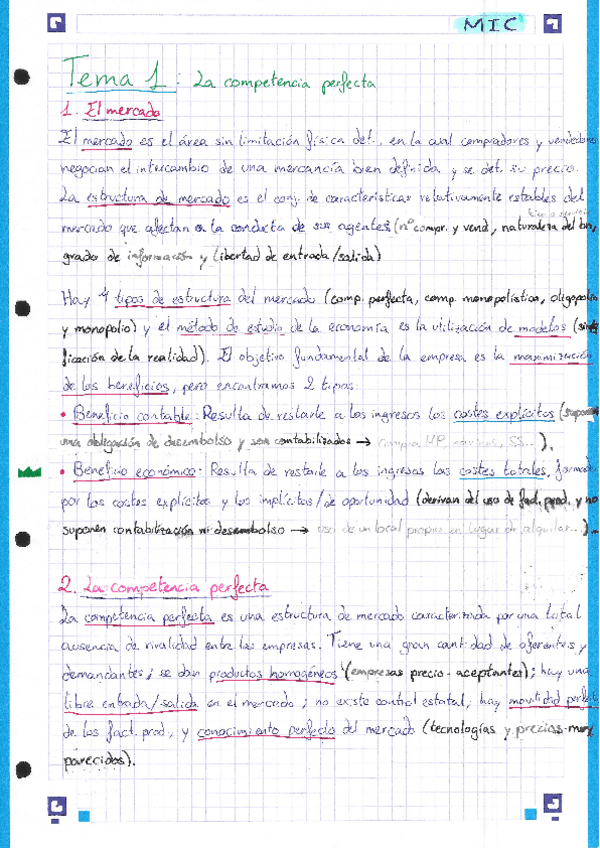 MIC
Tema 1: La competencia perfecta
1. El mercado
El mercado es el área sin limitación física det., en la cual compradores y vendedores
negocian el intercambio de una mercancía bien definida y se det. su precio.
La estructura de mercado es el conj. de características relativamente estables del
mercado que afectan a la conducta de sus agentes (nº compr. y vend, naturaleza del bn,
grado de información y libertad de entrada/salida)
Hay 4 tipos de estructura del mercado (comp. perfecta, comp. monopolística, oligopolio
y monopolio) y el método de estudio de la economía es la utilización de modelos (sim
ficación de la realidad). El objetivo fundamental de la empresa es la maximización
de los beneficios, pero encontramos 2 tipos:
• Beneficio contable: Resulta de restarle a los ingresos los costes explícitos (supone
una obligación de desembolso y son contabilizados → compra MP, nóminas, SS...).
• Beneficio económico: Resulta de restarle a los ingresos los costes totales, formado
por los costes explícitos y los implícitos/de oportunidad (derivan del uso de fact. prod. y no
suponen contabilización ni desembolso → uso de un local propio en lugar de alquilar...).
2. La competencia perfecta
La competencia perfecta es una estructura de mercado caracterizada por una total
ausencia de rivalidad entre las empresas. Tiene una gran cantidad de oferentes y
demandantes; se dan productos homogéneos (empresas precio-aceptantes); hay una
libre entrada/salida en el mercado; no existe control estatal, hay movilidad perfect
de los fact. prod., y conocimiento perfecto del mercado (tecnologías y precios muy
parecidos).